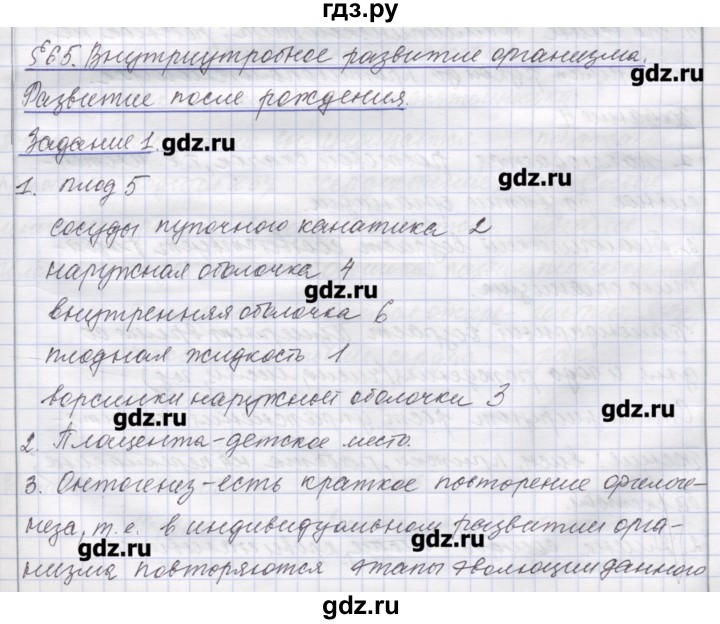 гдз.ру
§65. Внутриутробное развитие организма.
gdz.ru
Развитие после рождения.
Задание 1. gdz.ru
1. плод 5
gdz.ru
сосуды пупочного канатика 2
наружная оболочка 4
gdz.ru
внутренняя оболочка 6
плодная жидкость 1
ворсинки наружной оболочки 3
gdz.ru
gdz.ru
2. Плацента - детское место.
3. Онтогенез - есть краткое повторение филоге-
неза, т.е. в индивидуальном развитии орга-
gdz.ru
gdz.ru
низма повторяются этапы эволюции данного
gdz.ru